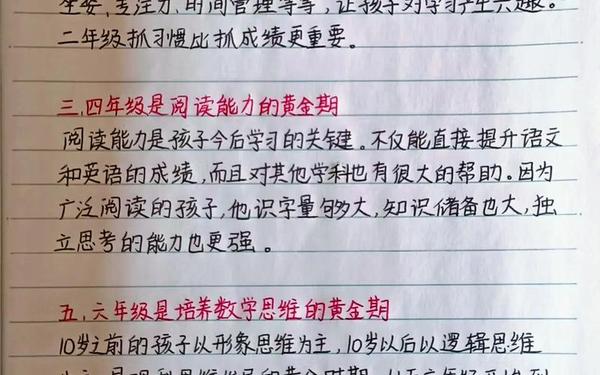 坐姿、专注力、时间管理等等，让孩子对学习产生兴趣。
二年级抓习惯比抓成绩更重要。
三、四年级是阅读能力的黄金期
阅读能力是孩子今后学习的关键。不仅能直接提升语文
和英语的成绩，而且对其他学科也有很大的帮助。因为
广泛阅读的孩子，他识字量够大，知识储备也大，独
立思考的能力也更强。
五、六年级是培养数学思维的黄金期
10岁之前的孩子以形象思维为主，10岁以后以逻辑思维